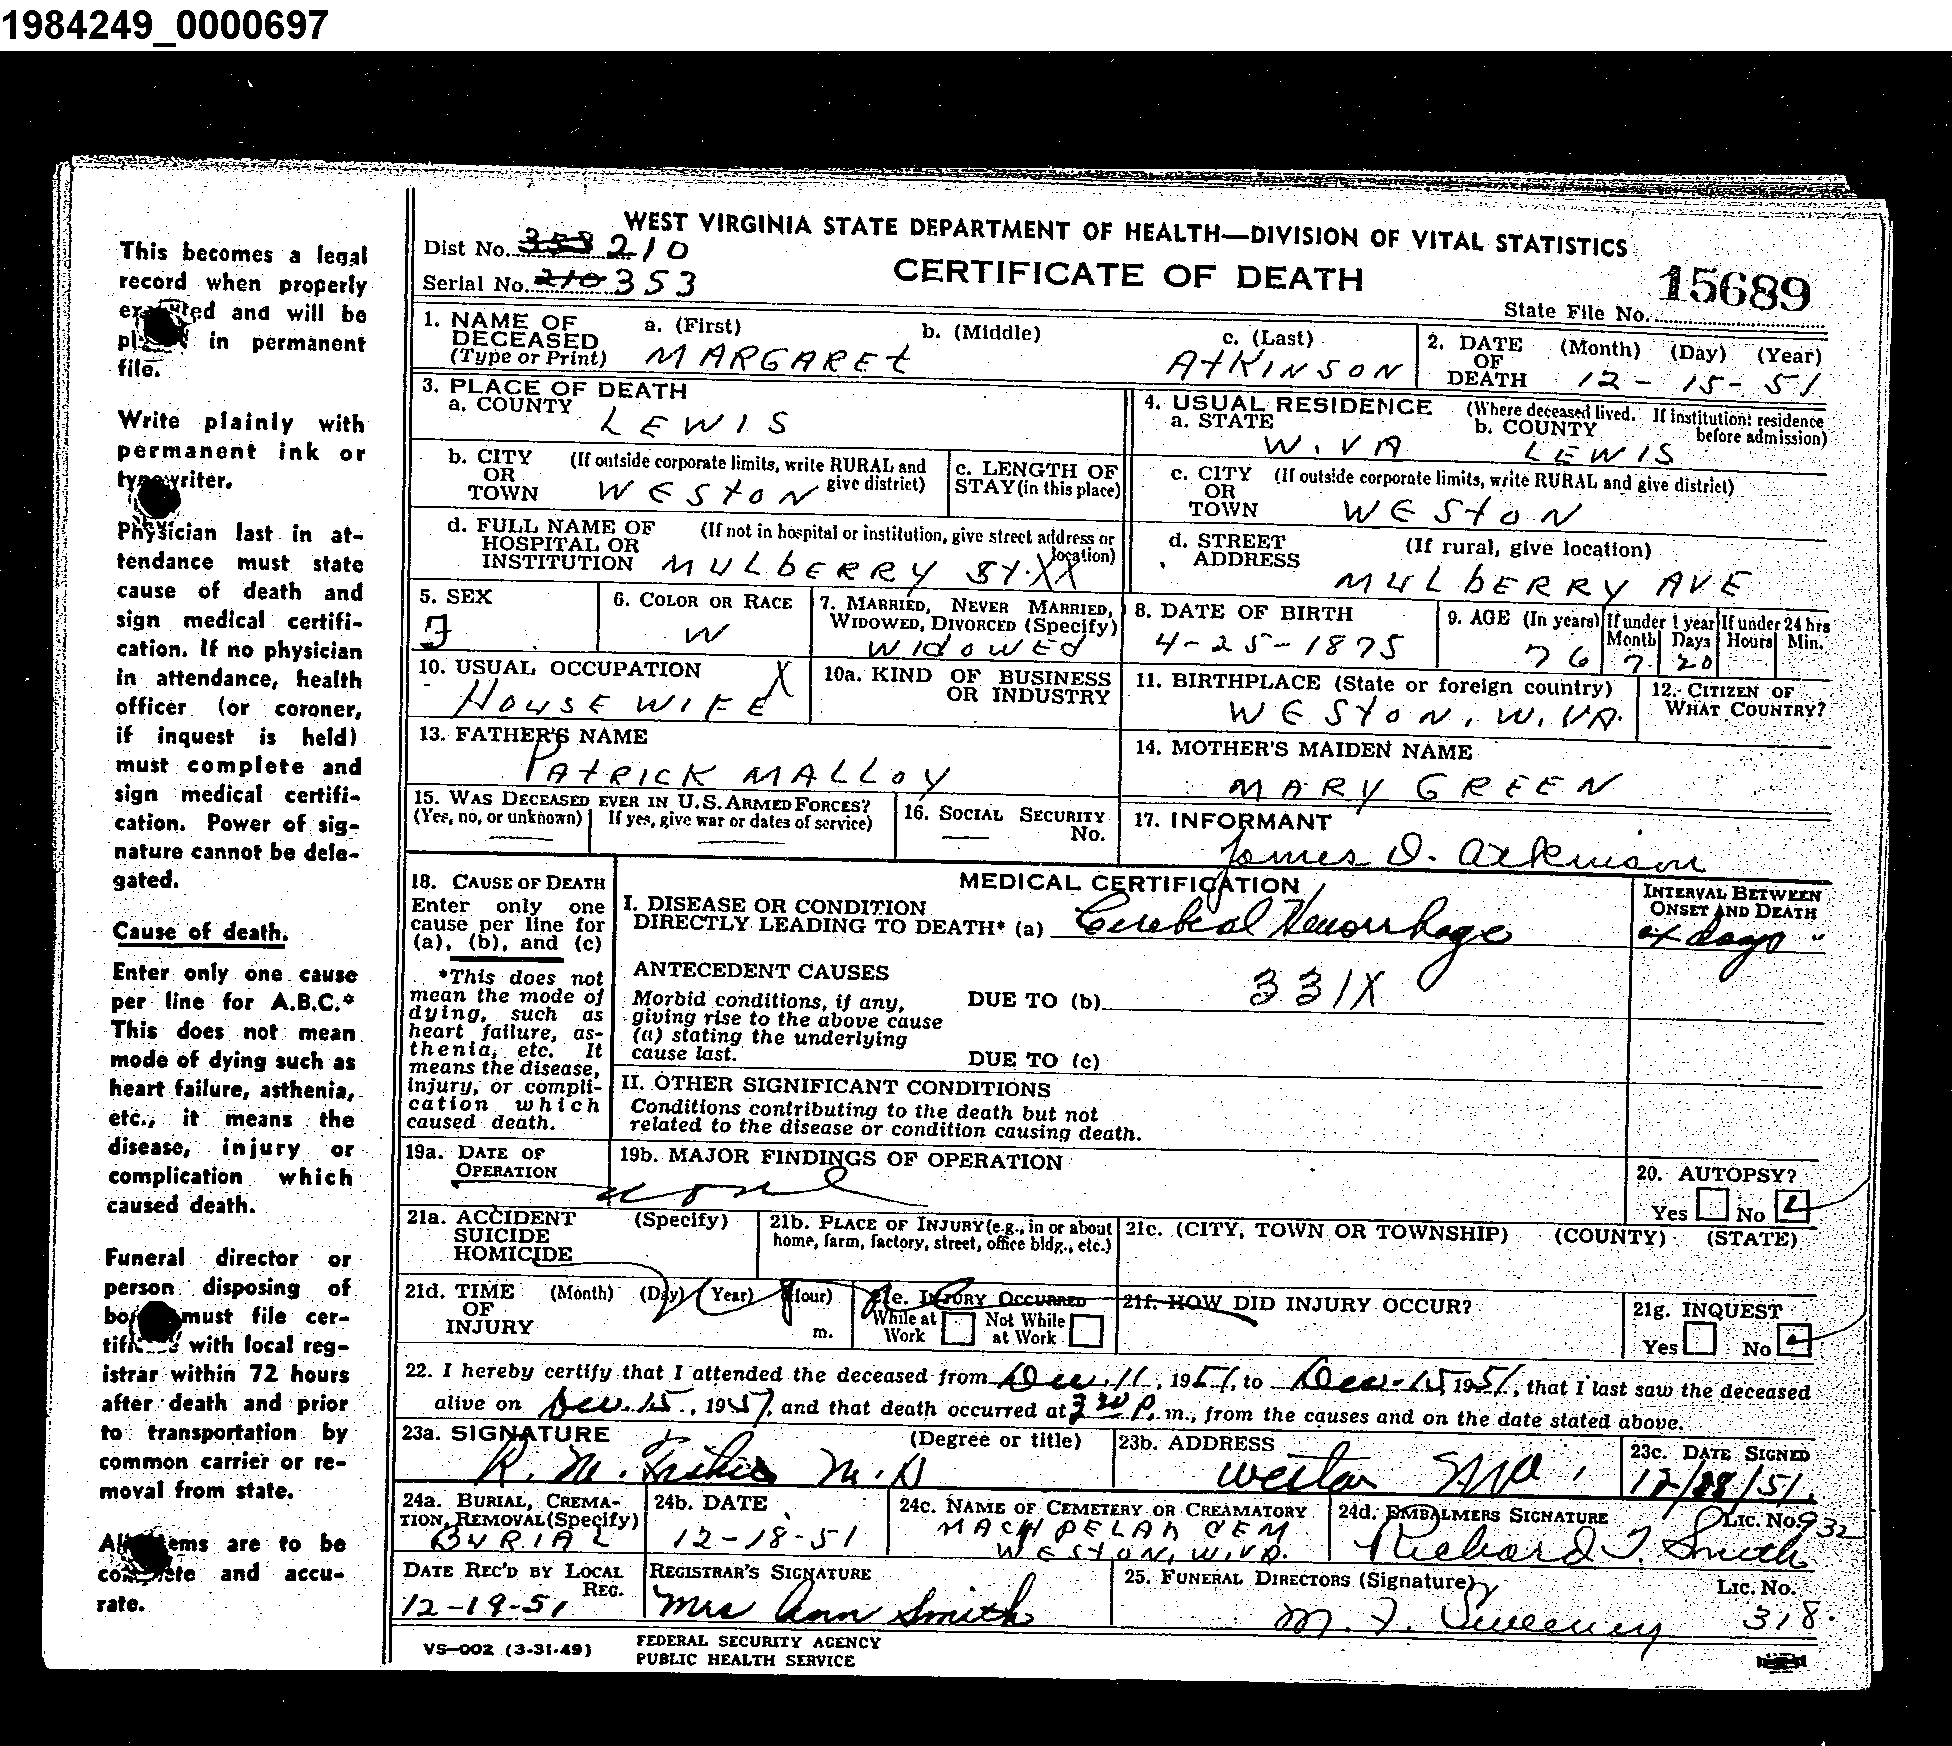 1984249_0000697
This becomes a legal
record when properly
and will be
in permanent
file.
Write plainly with
permanent ink or
typewriter.
Physician last in at-
tendance must state
cause of death and
sign medical certifi-
cation. If no physician
in attendance, health
officer (or coroner,
if inquest is held)
must complete and
sign medical certifi-
cation. Power of sig-
nature cannot be dele-
gated.
Cause of death.
Enter only one cause
per line for A.B.C.*
This does not mean
mode of dying such as
heart failure, asthenia,
etc., it means the
disease, injury or
complication which
caused death.
Funeral director or
person disposing of
must file cer-
with local reg-
istrar within 72 hours
after death and prior
to transportation by
common carrier or re-
moval from state.
are to be
and accu-
rate.
WEST VIRGINIA STATE DEPARTMENT OF HEALTH—DIVISION OF VITAL STATISTICS
Dist No. 353 210
CERTIFICATE OF DEATH
Serial No. 210 353
State File No. 15689
1. NAME OF DECEASED (Type or Print) a. (First) MARGARET b. (Middle) c. (Last) ATKINSON
2. DATE OF DEATH (Month) (Day) (Year) 12-15-51
3. PLACE OF DEATH
a. COUNTY LEWIS
b. CITY OR TOWN (If outside corporate limits, write RURAL and give district) WESTON
c. LENGTH OF STAY (in this place)
d. FULL NAME OF HOSPITAL OR INSTITUTION (If not in hospital or institution, give street address or location) MULBERRY ST. XX
4. USUAL RESIDENCE (Where deceased lived. If institution: residence before admission)
a. STATE W. VA b. COUNTY LEWIS
c. CITY OR TOWN (If outside corporate limits, write RURAL and give district) WESTON
d. STREET ADDRESS (If rural, give location) MULBERRY AVE
5. SEX F
6. COLOR OR RACE W
7. MARRIED, NEVER MARRIED, WIDOWED, DIVORCED (Specify) WIDOWED
8. DATE OF BIRTH 4-25-1875
9. AGE (In years) 76 If under 1 year Month 7 Days 20 If under 24 hrs Hours Min.
10. USUAL OCCUPATION X HOUSEWIFE
10a. KIND OF BUSINESS OR INDUSTRY
11. BIRTHPLACE (State or foreign country) WESTON, W. VA.
12. CITIZEN OF WHAT COUNTRY?
13. FATHER'S NAME PATRICK MALLOY
14. MOTHER'S MAIDEN NAME MARY GREEN
15. WAS DECEASED EVER IN U.S. ARMED FORCES? (Yes, no, or unknown) — If yes, give war or dates of service) —
16. SOCIAL SECURITY No. —
17. INFORMANT James D. Atkinson
18. CAUSE OF DEATH
Enter only one cause per line for (a), (b), and (c)
*This does not mean the mode of dying, such as heart failure, asthenia, etc. It means the disease, injury, or complication which caused death.
MEDICAL CERTIFICATION
I. DISEASE OR CONDITION DIRECTLY LEADING TO DEATH* (a) Cerebral Hemorrhage
INTERVAL BETWEEN ONSET AND DEATH days
ANTECEDENT CAUSES
Morbid conditions, if any, giving rise to the above cause (a) stating the underlying cause last.
DUE TO (b) 331X
DUE TO (c)
II. OTHER SIGNIFICANT CONDITIONS
Conditions contributing to the death but not related to the disease or condition causing death.
19a. DATE OF OPERATION none
19b. MAJOR FINDINGS OF OPERATION
20. AUTOPSY? Yes No
21a. ACCIDENT SUICIDE HOMICIDE (Specify)
21b. PLACE OF INJURY (e.g., in or about home, farm, factory, street, office bldg., etc.)
21c. (CITY, TOWN OR TOWNSHIP) (COUNTY) (STATE)
21d. TIME OF INJURY (Month) (Day) (Year) (Hour) m.
21e. INJURY OCCURRED While at Work Not While at Work
21f. HOW DID INJURY OCCUR?
21g. INQUEST Yes No
22. I hereby certify that I attended the deceased from Dec. 11, 1951, to Dec. 15, 1951, that I last saw the deceased
alive on Dec. 15, 1951, and that death occurred at P. m., from the causes and on the date stated above.
23a. SIGNATURE (Degree or title) R. M. M.D
23b. ADDRESS Weston
23c. DATE SIGNED 12/ /51.
24a. BURIAL, CREMATION, REMOVAL (Specify) BURIAL
24b. DATE 12-18-51
24c. NAME OF CEMETERY OR CREAMATORY MACHPELAH CEM WESTON, W. VA.
24d. EMBALMERS SIGNATURE Richard T. Smith Lic. No. 932
DATE REC'D BY LOCAL REG. 12-19-51
REGISTRAR'S SIGNATURE Mrs Ann Smith
25. FUNERAL DIRECTORS (Signature) M. F. Sweeney LIC. No. 318.
VS—002 (3-31-49)
FEDERAL SECURITY AGENCY
PUBLIC HEALTH SERVICE